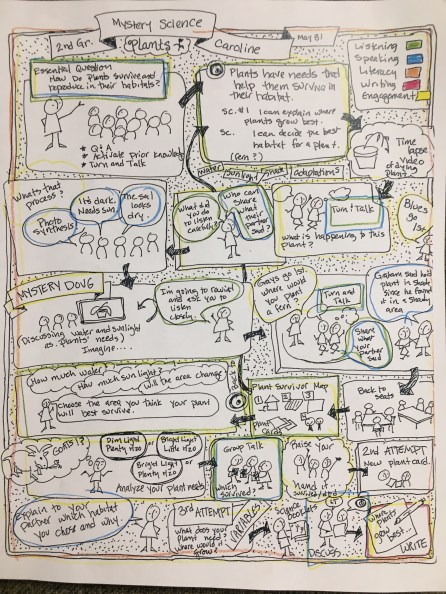 Mystery Science
2nd Gr.
Plants
Caroline
May 31
Listening
Speaking
Literacy
Writing
Engagement
Essential Question
How Do Plants survive and
reproduce in their habitats?
* Q+A
* Activate prior knowledge
* Turn and Talk
Plants have needs that
help them survive in
their habitat.
SC. #1 I can explain where
plants grow best.
SC. I can decide the best
habitat for a plant.
(Fern?)
Water
Sunlight
Space
Adaptations
Time lapse
video
of dying
Plant
Whats that
process?
Photo
synthesis
It's dark.
Needs sun
The soil
looks
dry
What did you
do to
listen
carefully?
Who can
share
what
their
partner
said?
Turn & Talk
What is happening to this
plant?
Blues
go
1st
MYSTERY DOUG
Discussing water and sunlight
as plants needs)
Imagine....
I'm going to rewind
and ask you to
listen
closely
Grays go 1st.
where would
you plant
a fern?
Turn and
Talk
Share
what
your
partner
said
Graham said he'd
plant in shade
Since he found
it in a shady
area
How much water?
How much sun light?
Will the area change?
Choose the area you think your plant
will best survive.
Back to
Plant Survivor Map
Plant
cards
Back to
seats
Dim Light
Plenty H2O
or
Bright Light
Little H2O
or
Bright Light
Plenty H2O
Analyze your plant needs
Group Talk
which
survived?
Raise your
hand if
survived
2nd ATTEMPT
New plant card.
Explain to your
partner which habitat
you chose and why
3rd ATTEMPT
What does your
plant need
where would it
grow?
VARIABLES
Science
Booklets
DISCUSS
Where
plants
grow
best
WRITE